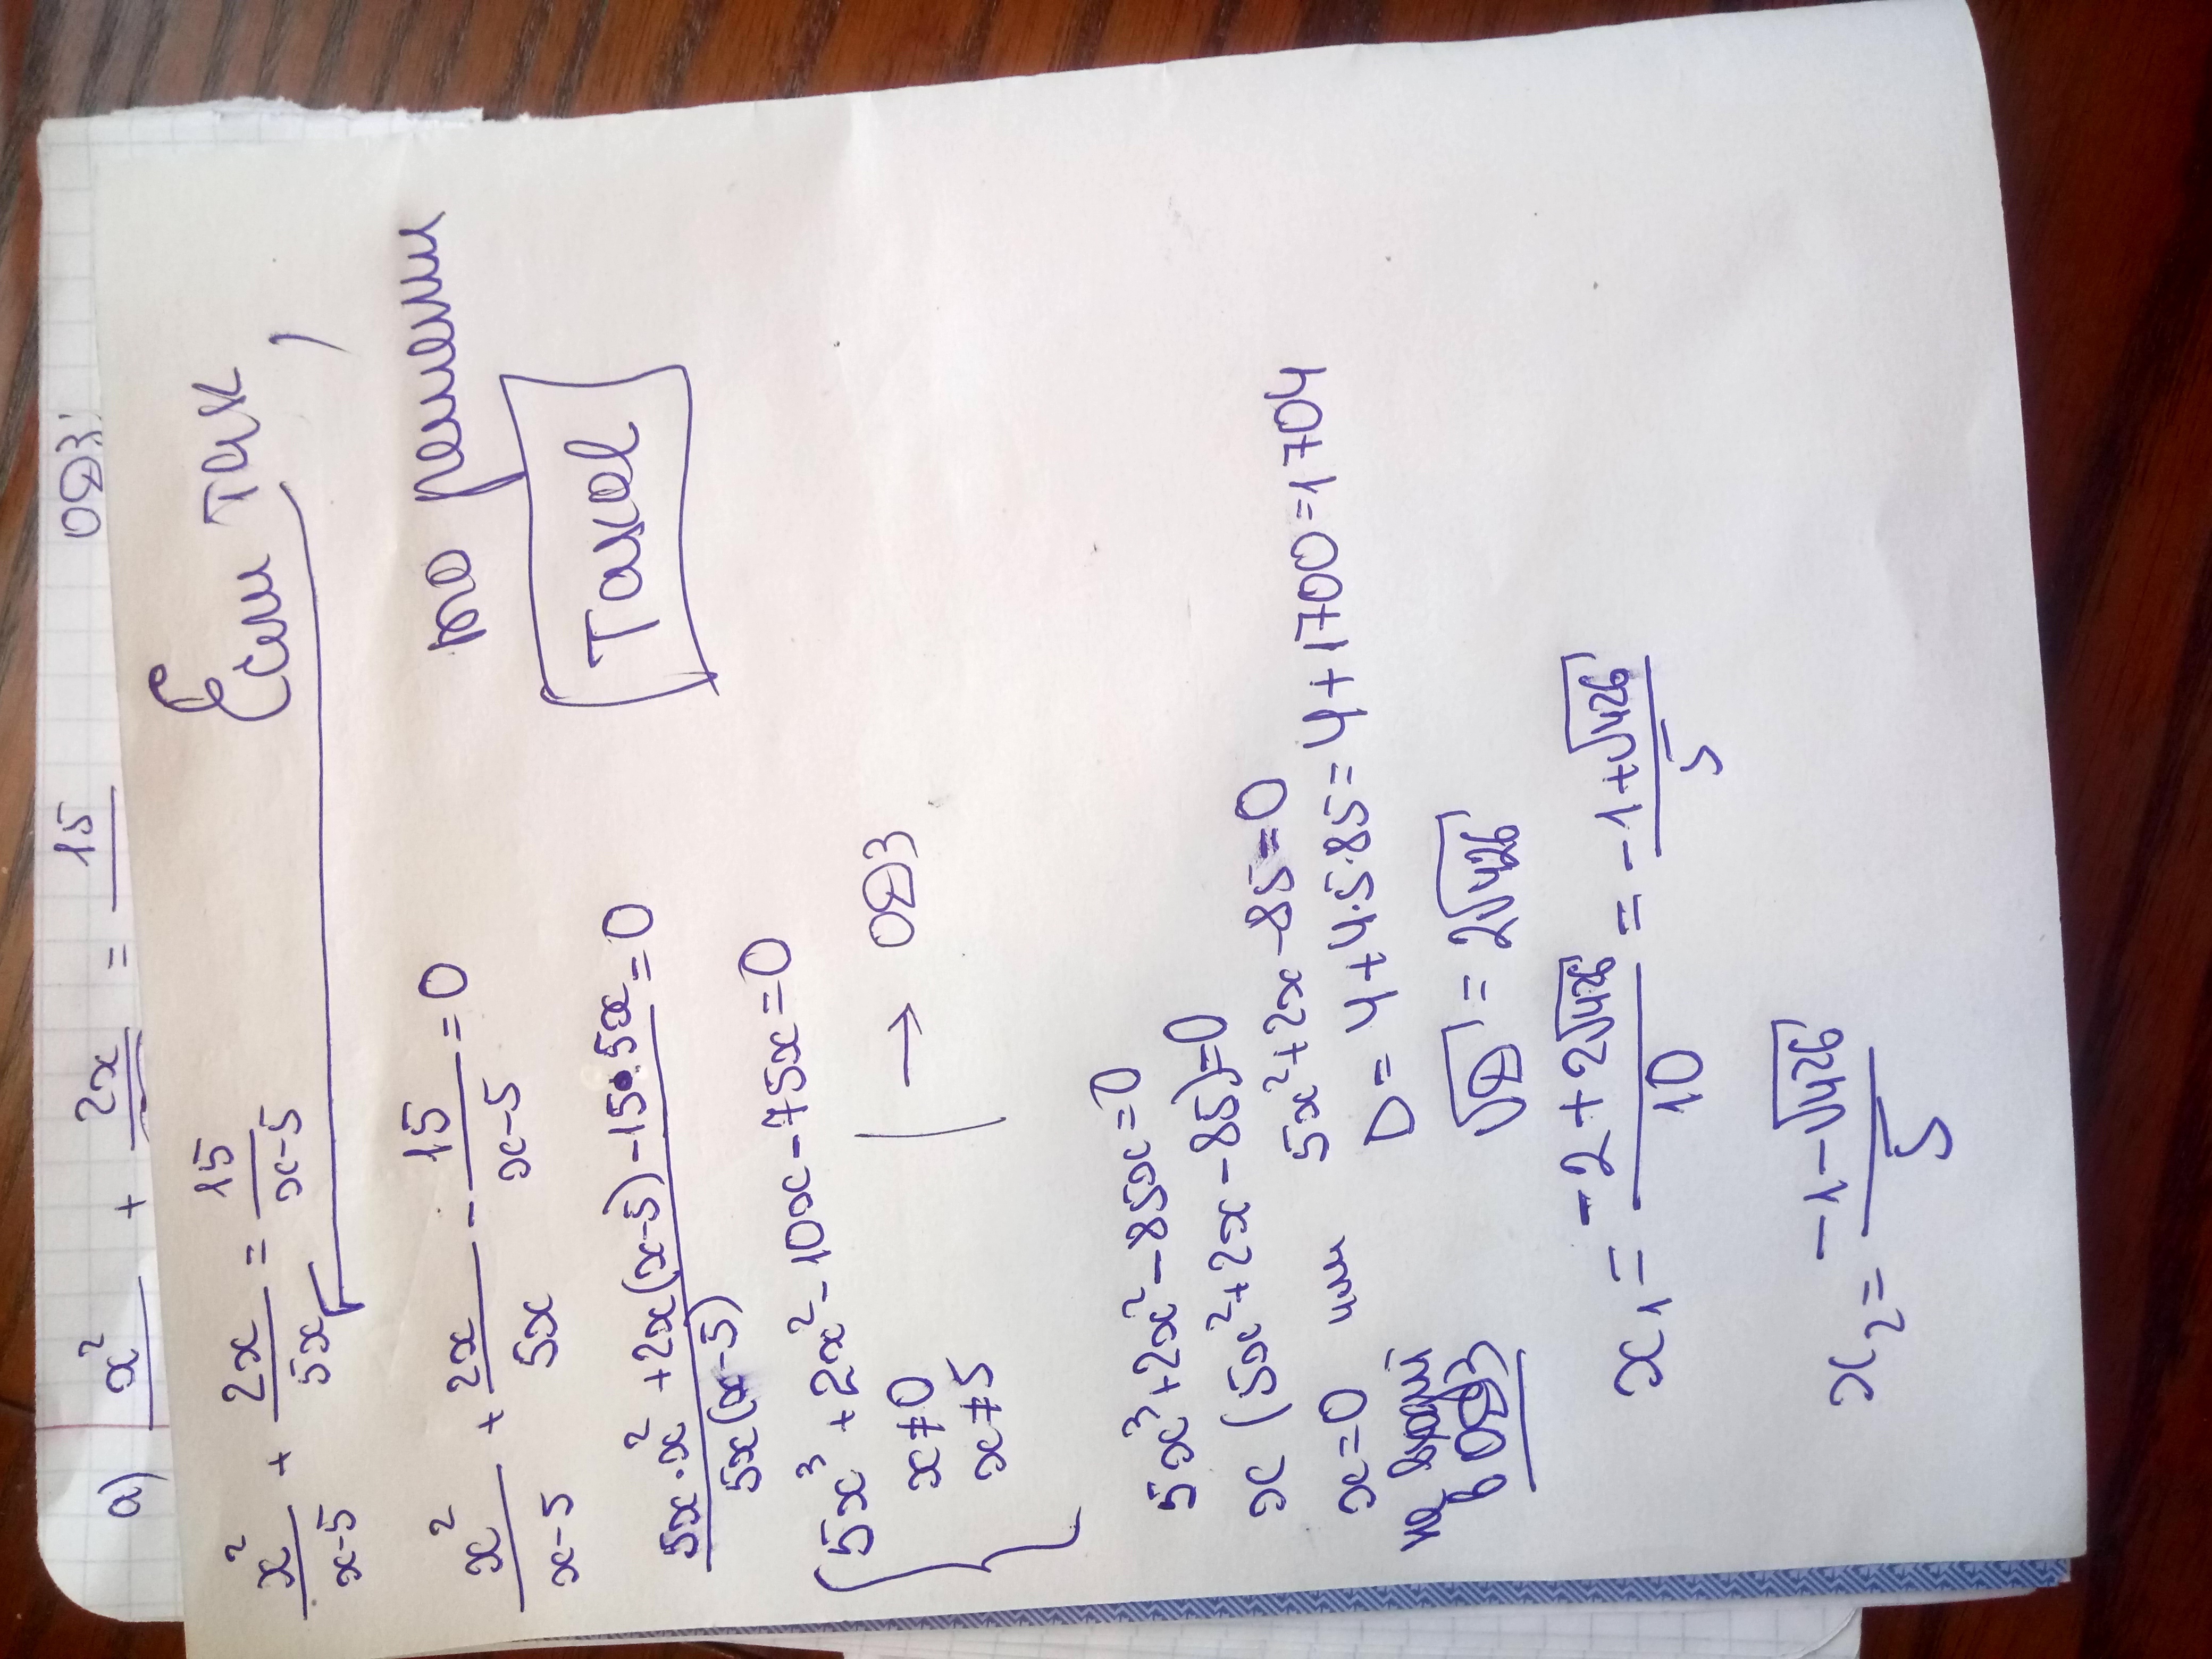 а) x² + 2x = 15 ОДЗ:
x²/(x-5) + 2x/5x = 15/(x-5) Если так,
x²/(x-5) + 2x/5x - 15/(x-5) = 0 то решении
(5x·x² + 2x(x-5) - 15·5x)/(5x(x-5)) = 0 такое
{ 5x³ + 2x² - 10x - 75x = 0
x≠0
x≠5 | → ОДЗ
5x³ + 2x² - 85x = 0
x(5x² + 2x - 85) = 0
x=0 или 5x² + 2x - 85 = 0
не входит D = 4 + 4·5·85 = 4 + 1700 = 1704
в ОДЗ √D = 2√426
x₁ = (-2 + 2√426)/10 = (-1 + √426)/5
x₂ = (-1 - √426)/5